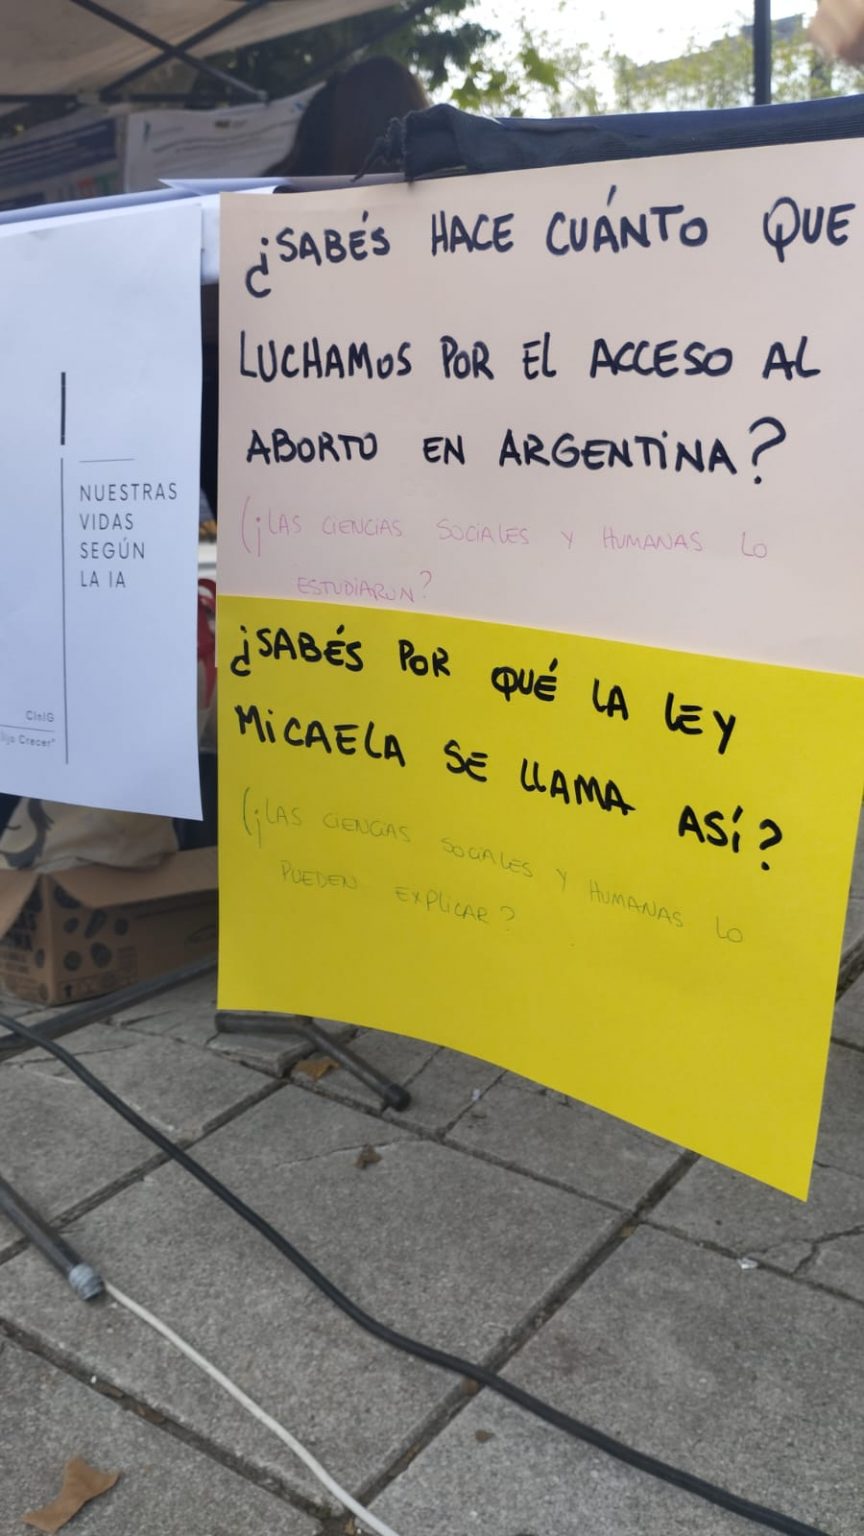 ¿SABÉS HACE CUÁNTO QUE
LUCHAMOS POR EL ACCESO AL
ABORTO EN ARGENTINA?
(¡LAS CIENCIAS SOCIALES Y HUMANAS LO
ESTUDIARON?
¿SABÉS POR QUÉ LA LEY
MICAELA SE LLAMA ASÍ?
(¡LAS CIENCIAS SOCIALES Y HUMANAS LO
PUEDEN EXPLICAR?
NUESTRAS
VIDAS
SEGÚN
LA IA
CInIG
Crecer"